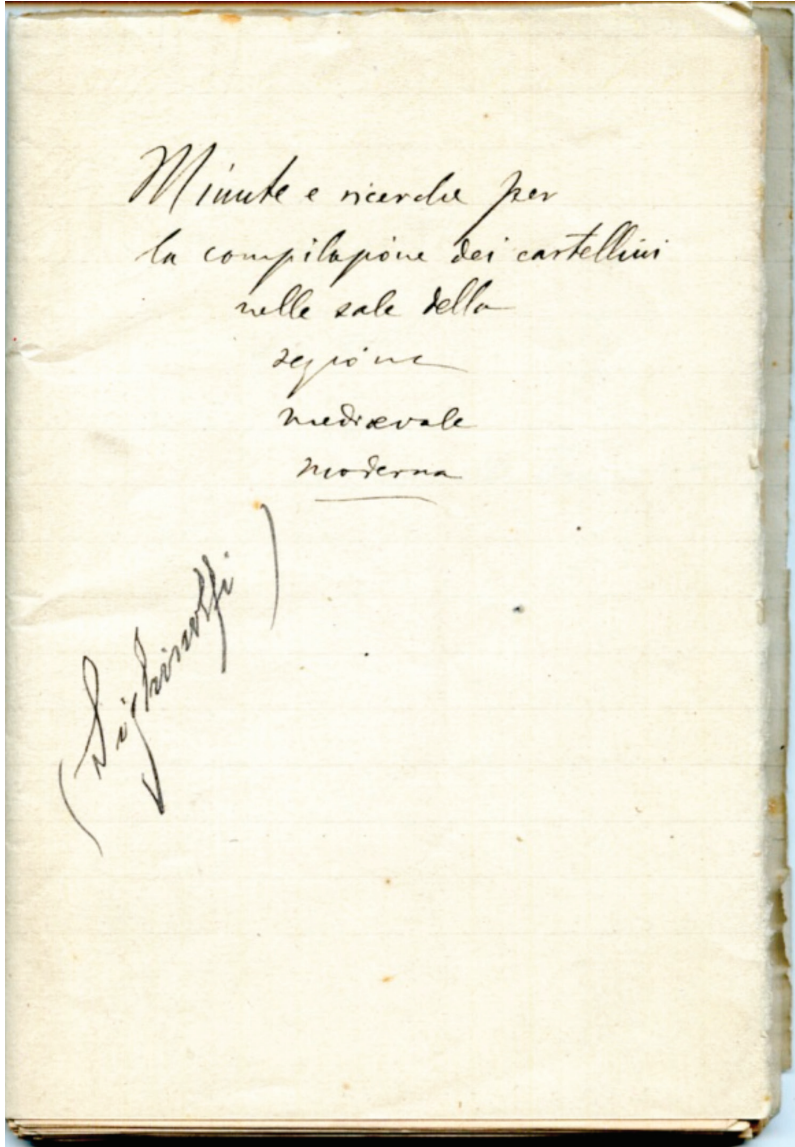 Minute e ricerche per
la compilazione dei cartellini
nelle sale della
sezione
mediævale
moderna
(Sighinolfi)